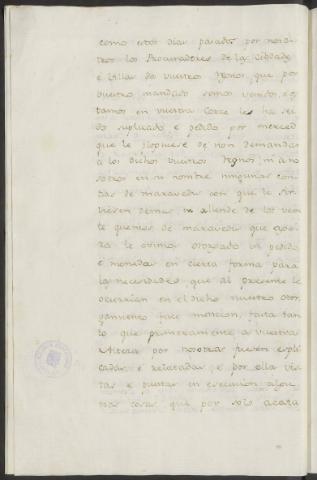 como estos dias pasados por noso-
tros los Procuradores de las Cibdades
é Villas de vuestros Regnos, que por
vuestro mandado somos venidos, é es-
tamos en vuestra Corte les ha sei-
do suplicado é pedido por merced
que le ploguiese de non demandar
á los dichos vuestros Regnos, ni á no-
sotros en su nombre ningunas con-
tias de maravedis con que le sir-
viesen demas é allende de los vein-
te quentos de maravedis que agora
le ovimos otorgado en pedido
é monedas en cierta forma para
las necesidades que al presente le
ocurrian en el dicho nuestro otor-
gamiento face mencion, fasta tan-
to que primeramente á vuestra
Alteza por nosotros fuesen expli-
cadas é relatadas, é por ella vis-
tas é puestas en execucion algu-
nas cosas que por solo acata